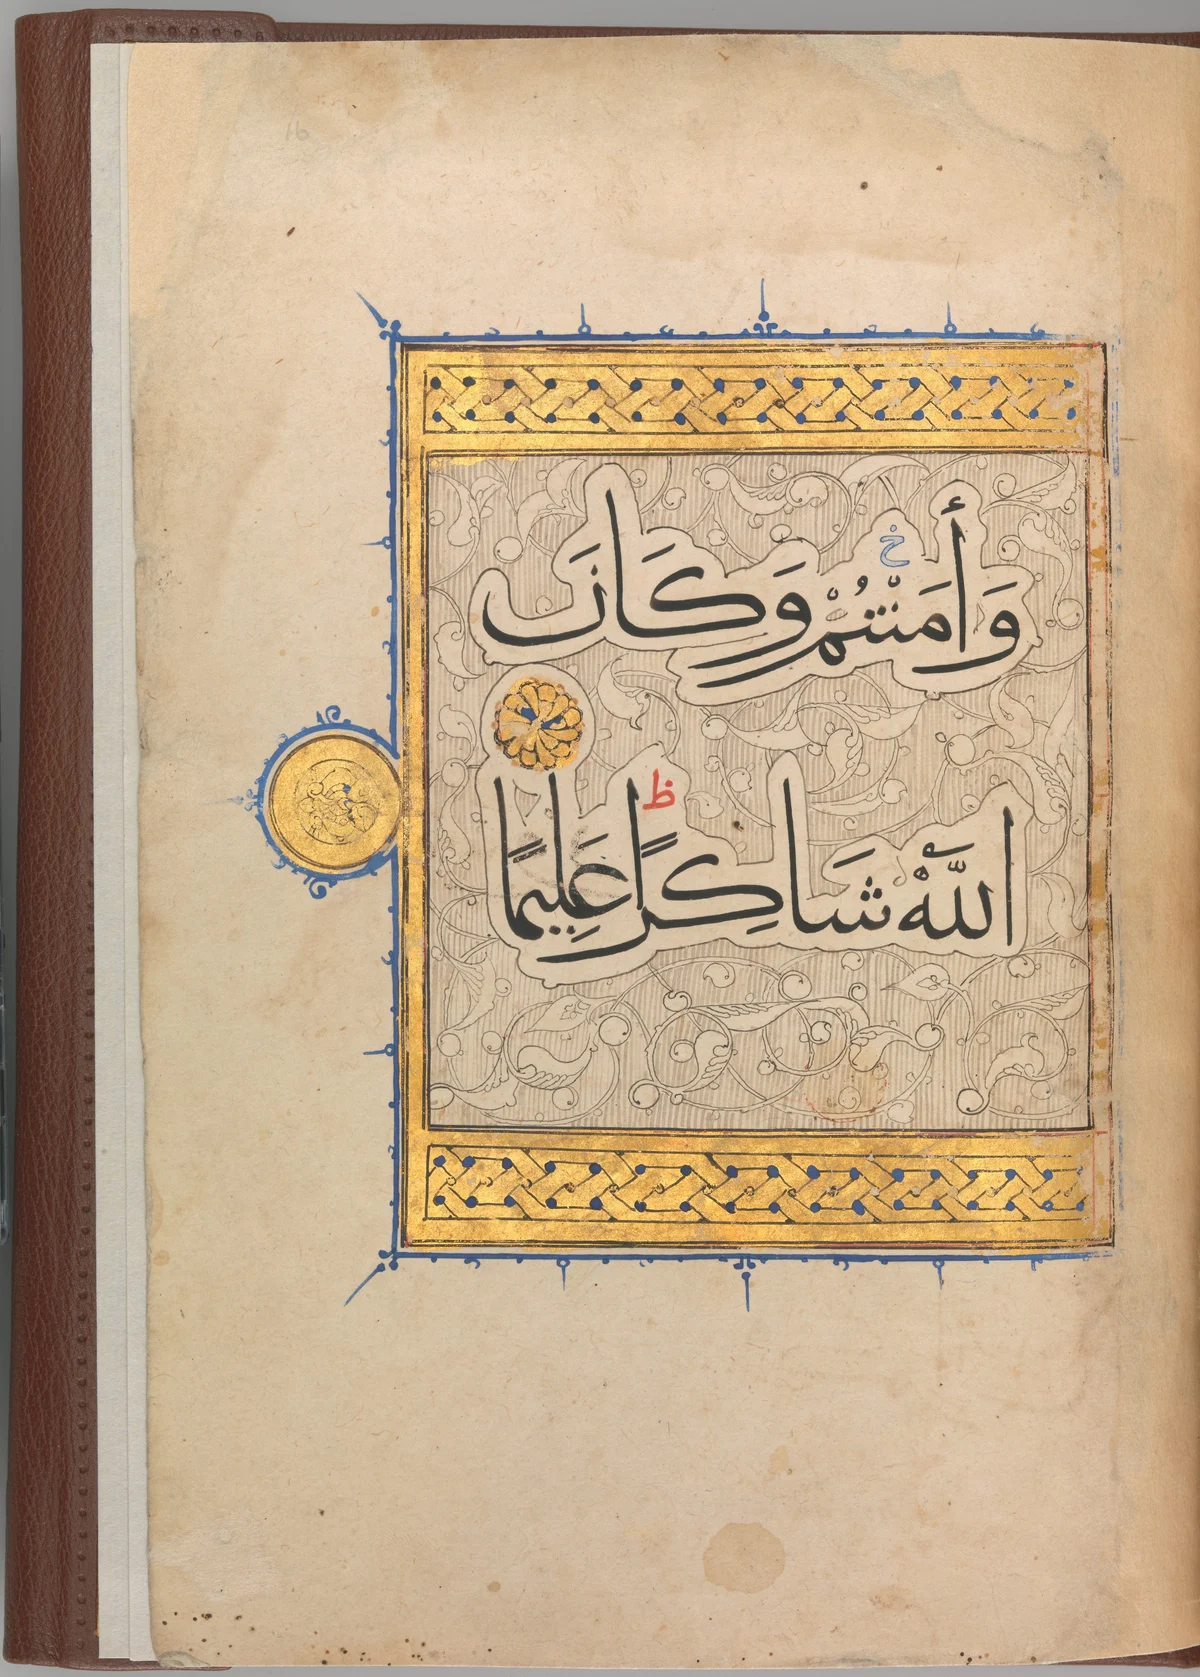 16
وَأَمَنْتُمْ وَكَانَ
اللَّهُ شَاكِرًا عَلِيمًا
خ
ظ